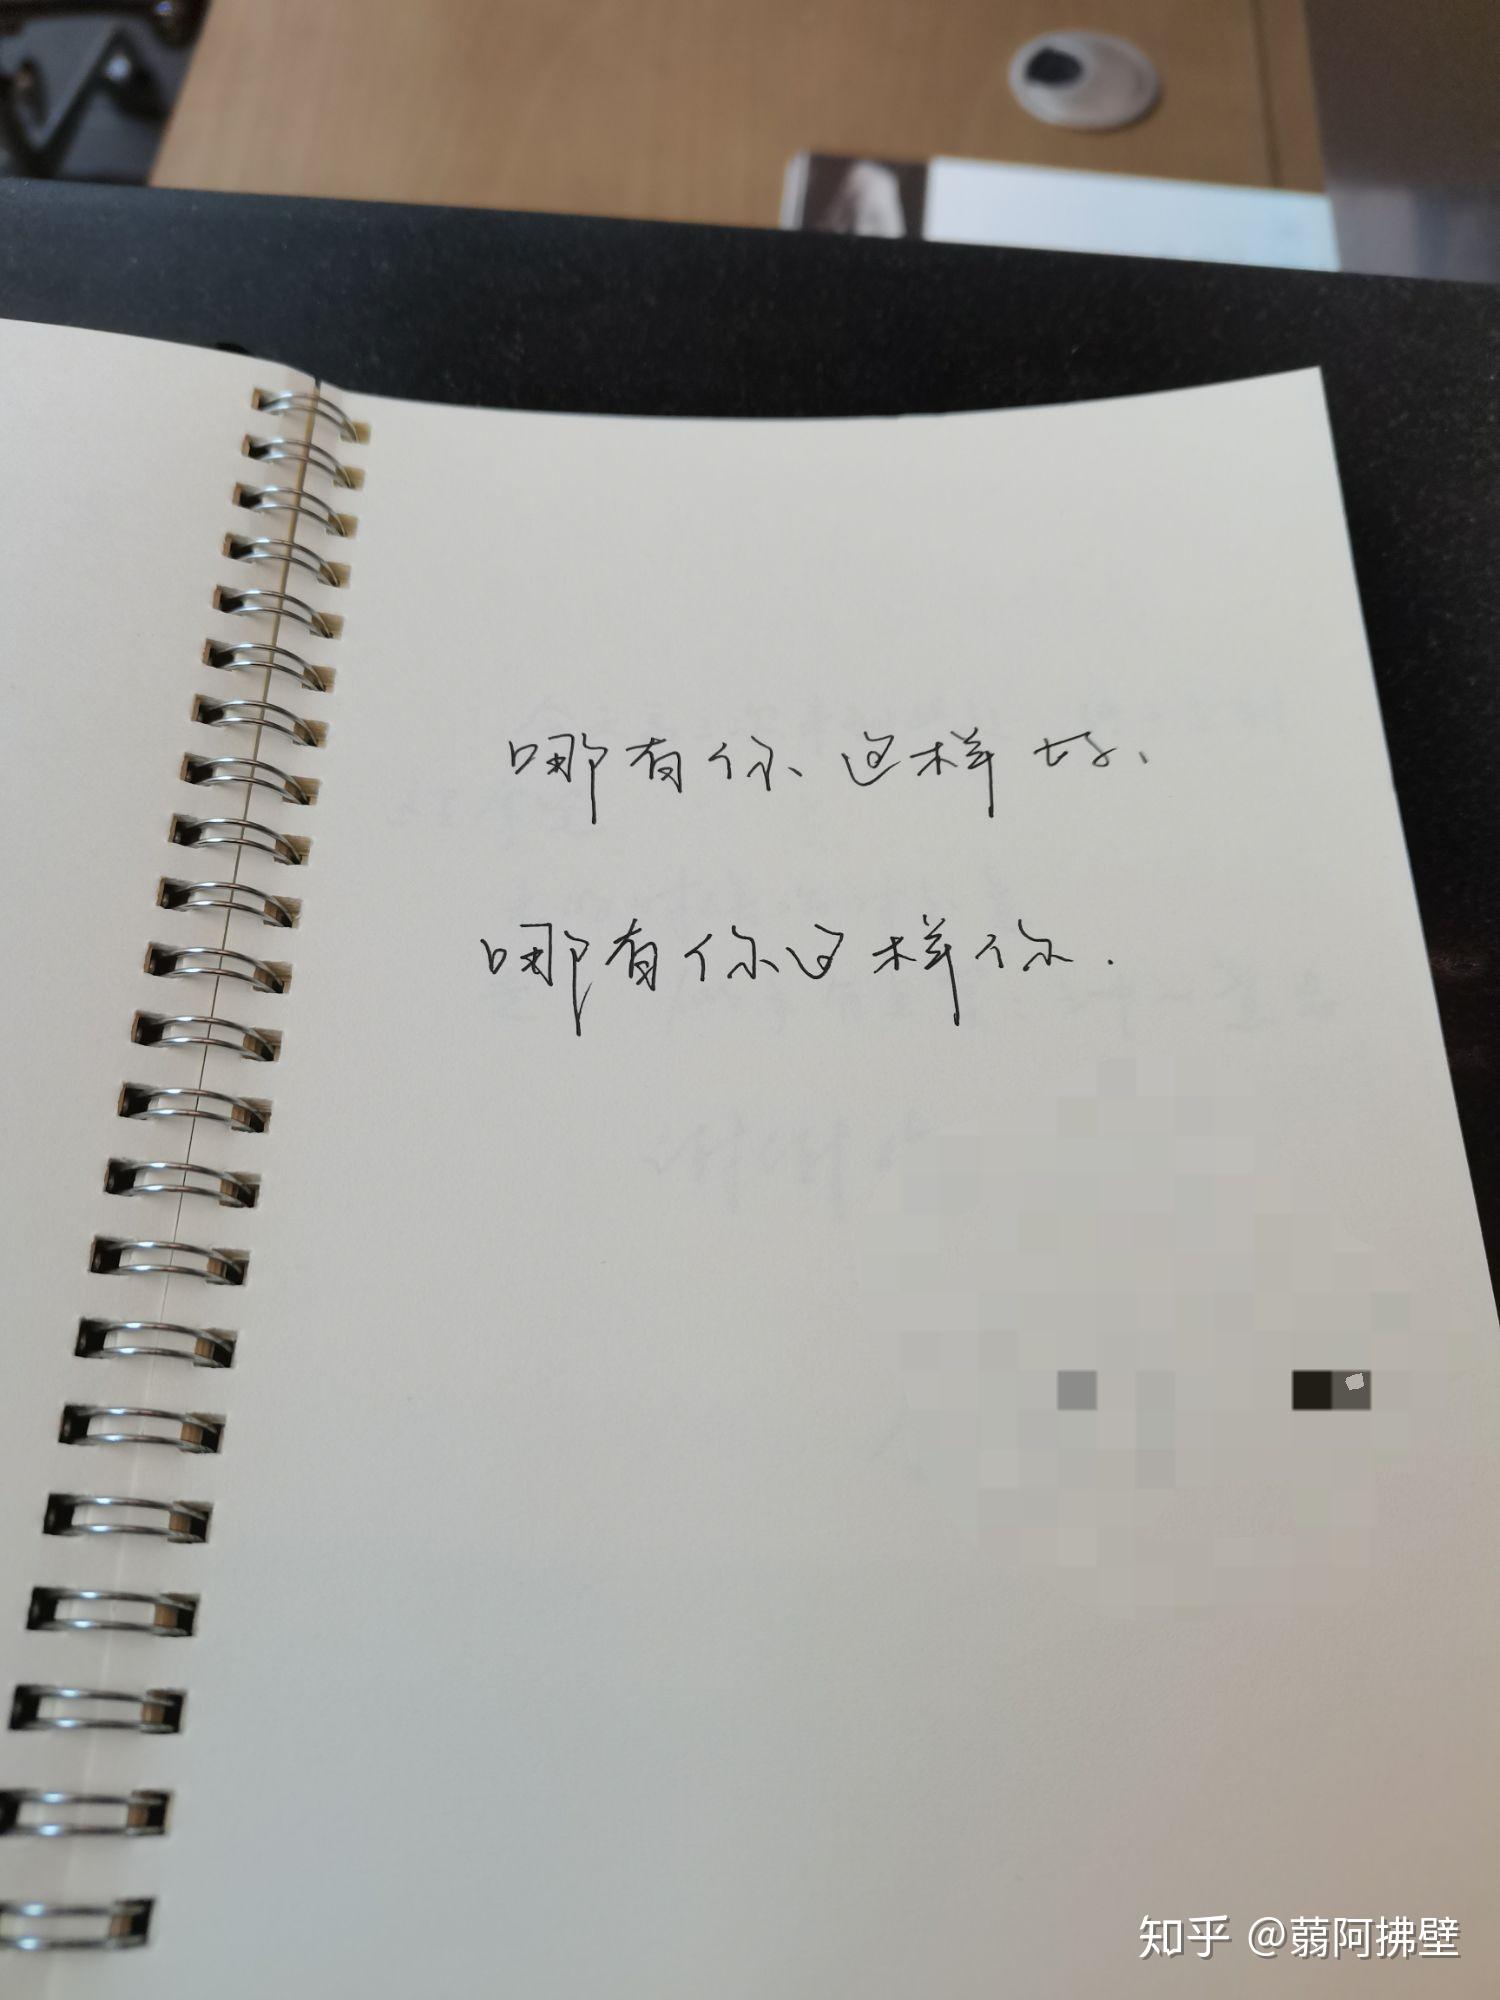 哪有你这样好、
哪有你这样你.
知乎 @蒻阿拂壁